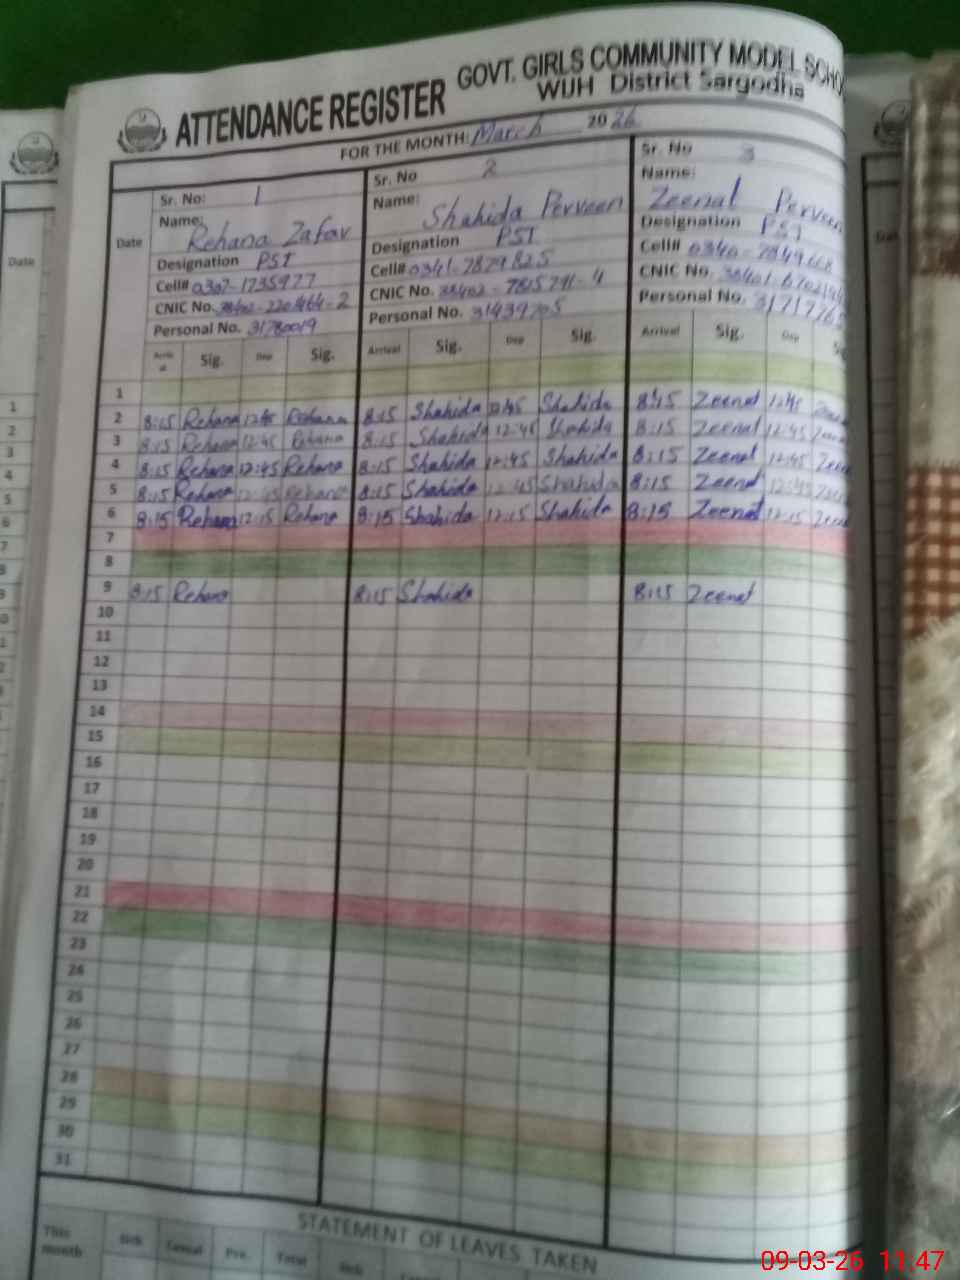 ATTENDANCE REGISTER
GOVT. GIRLS COMMUNITY MODEL
WIJH District Sargodha
FOR THE MONTH: March 2026
Sr. No: 1
Name: Rehana Zafar
Designation PST
Cell# 0307-1735977
CNIC No.
Personal No. 31780019
Sr. No 2
Name: Shahida Perveen
Designation PST
Cell# 0341-7879825
CNIC No.
Personal No. 31439705
Sr. No 3
Name: Zeenat Perveen
Designation PST
Cell#
CNIC No.
Personal No.
Date Sig. Dep Sig. Arrival Sig. Dep Sig. Arrival Sig. Dep
1
2 8:15 Rehana 12:45 Rehana 8:15 Shahida 12:45 Shahida 8:15 Zeenat 12:45
3 8:15 Rehana 12:45 Rehana 8:15 Shahida 12:45 Shahida 8:15 Zeenat 12:45
4 8:15 Rehana 12:45 Rehana 8:15 Shahida 12:45 Shahida 8:15 Zeenat 12:45
5 8:15 Rehana 12:45 Rehana 8:15 Shahida 12:45 Shahida 8:15 Zeenat 12:45
6 8:15 Rehana 12:15 Rehana 8:15 Shahida 12:15 Shahida 8:15 Zeenat 12:15
7
8
9 8:15 Rehana 8:15 Shahida 8:15 Zeenat
10
11
12
13
14
15
16
17
18
19
20
21
22
23
24
25
26
27
28
29
30
31
STATEMENT OF LEAVES TAKEN
This month Sick Casual Pre. Total Sick
09-03-26 11:47